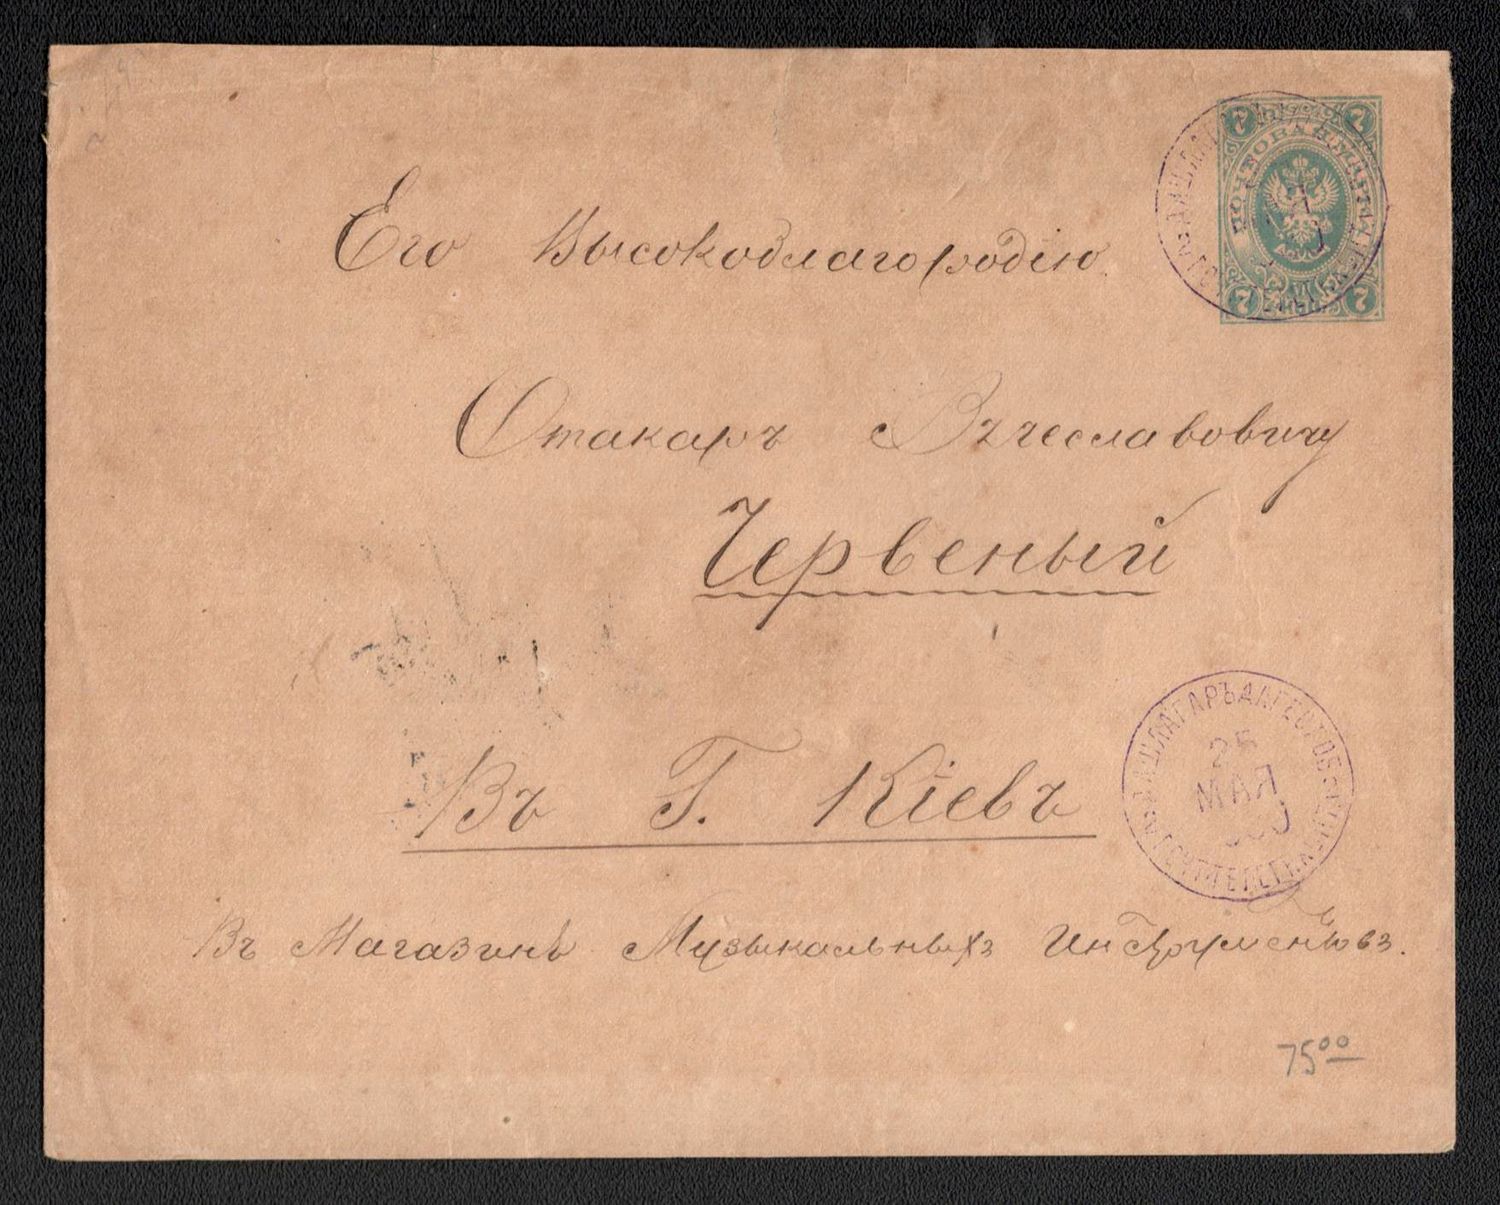 7 7
ПОЧТОВАЯ
Его Высокоблагородію
Отакаръ Вячеславовичу
Червеный
Въ Г. Кіевъ
25
МАЯ
Въ Магазинѣ Музыкальныхъ Инструментовъ.
7 7
75 00